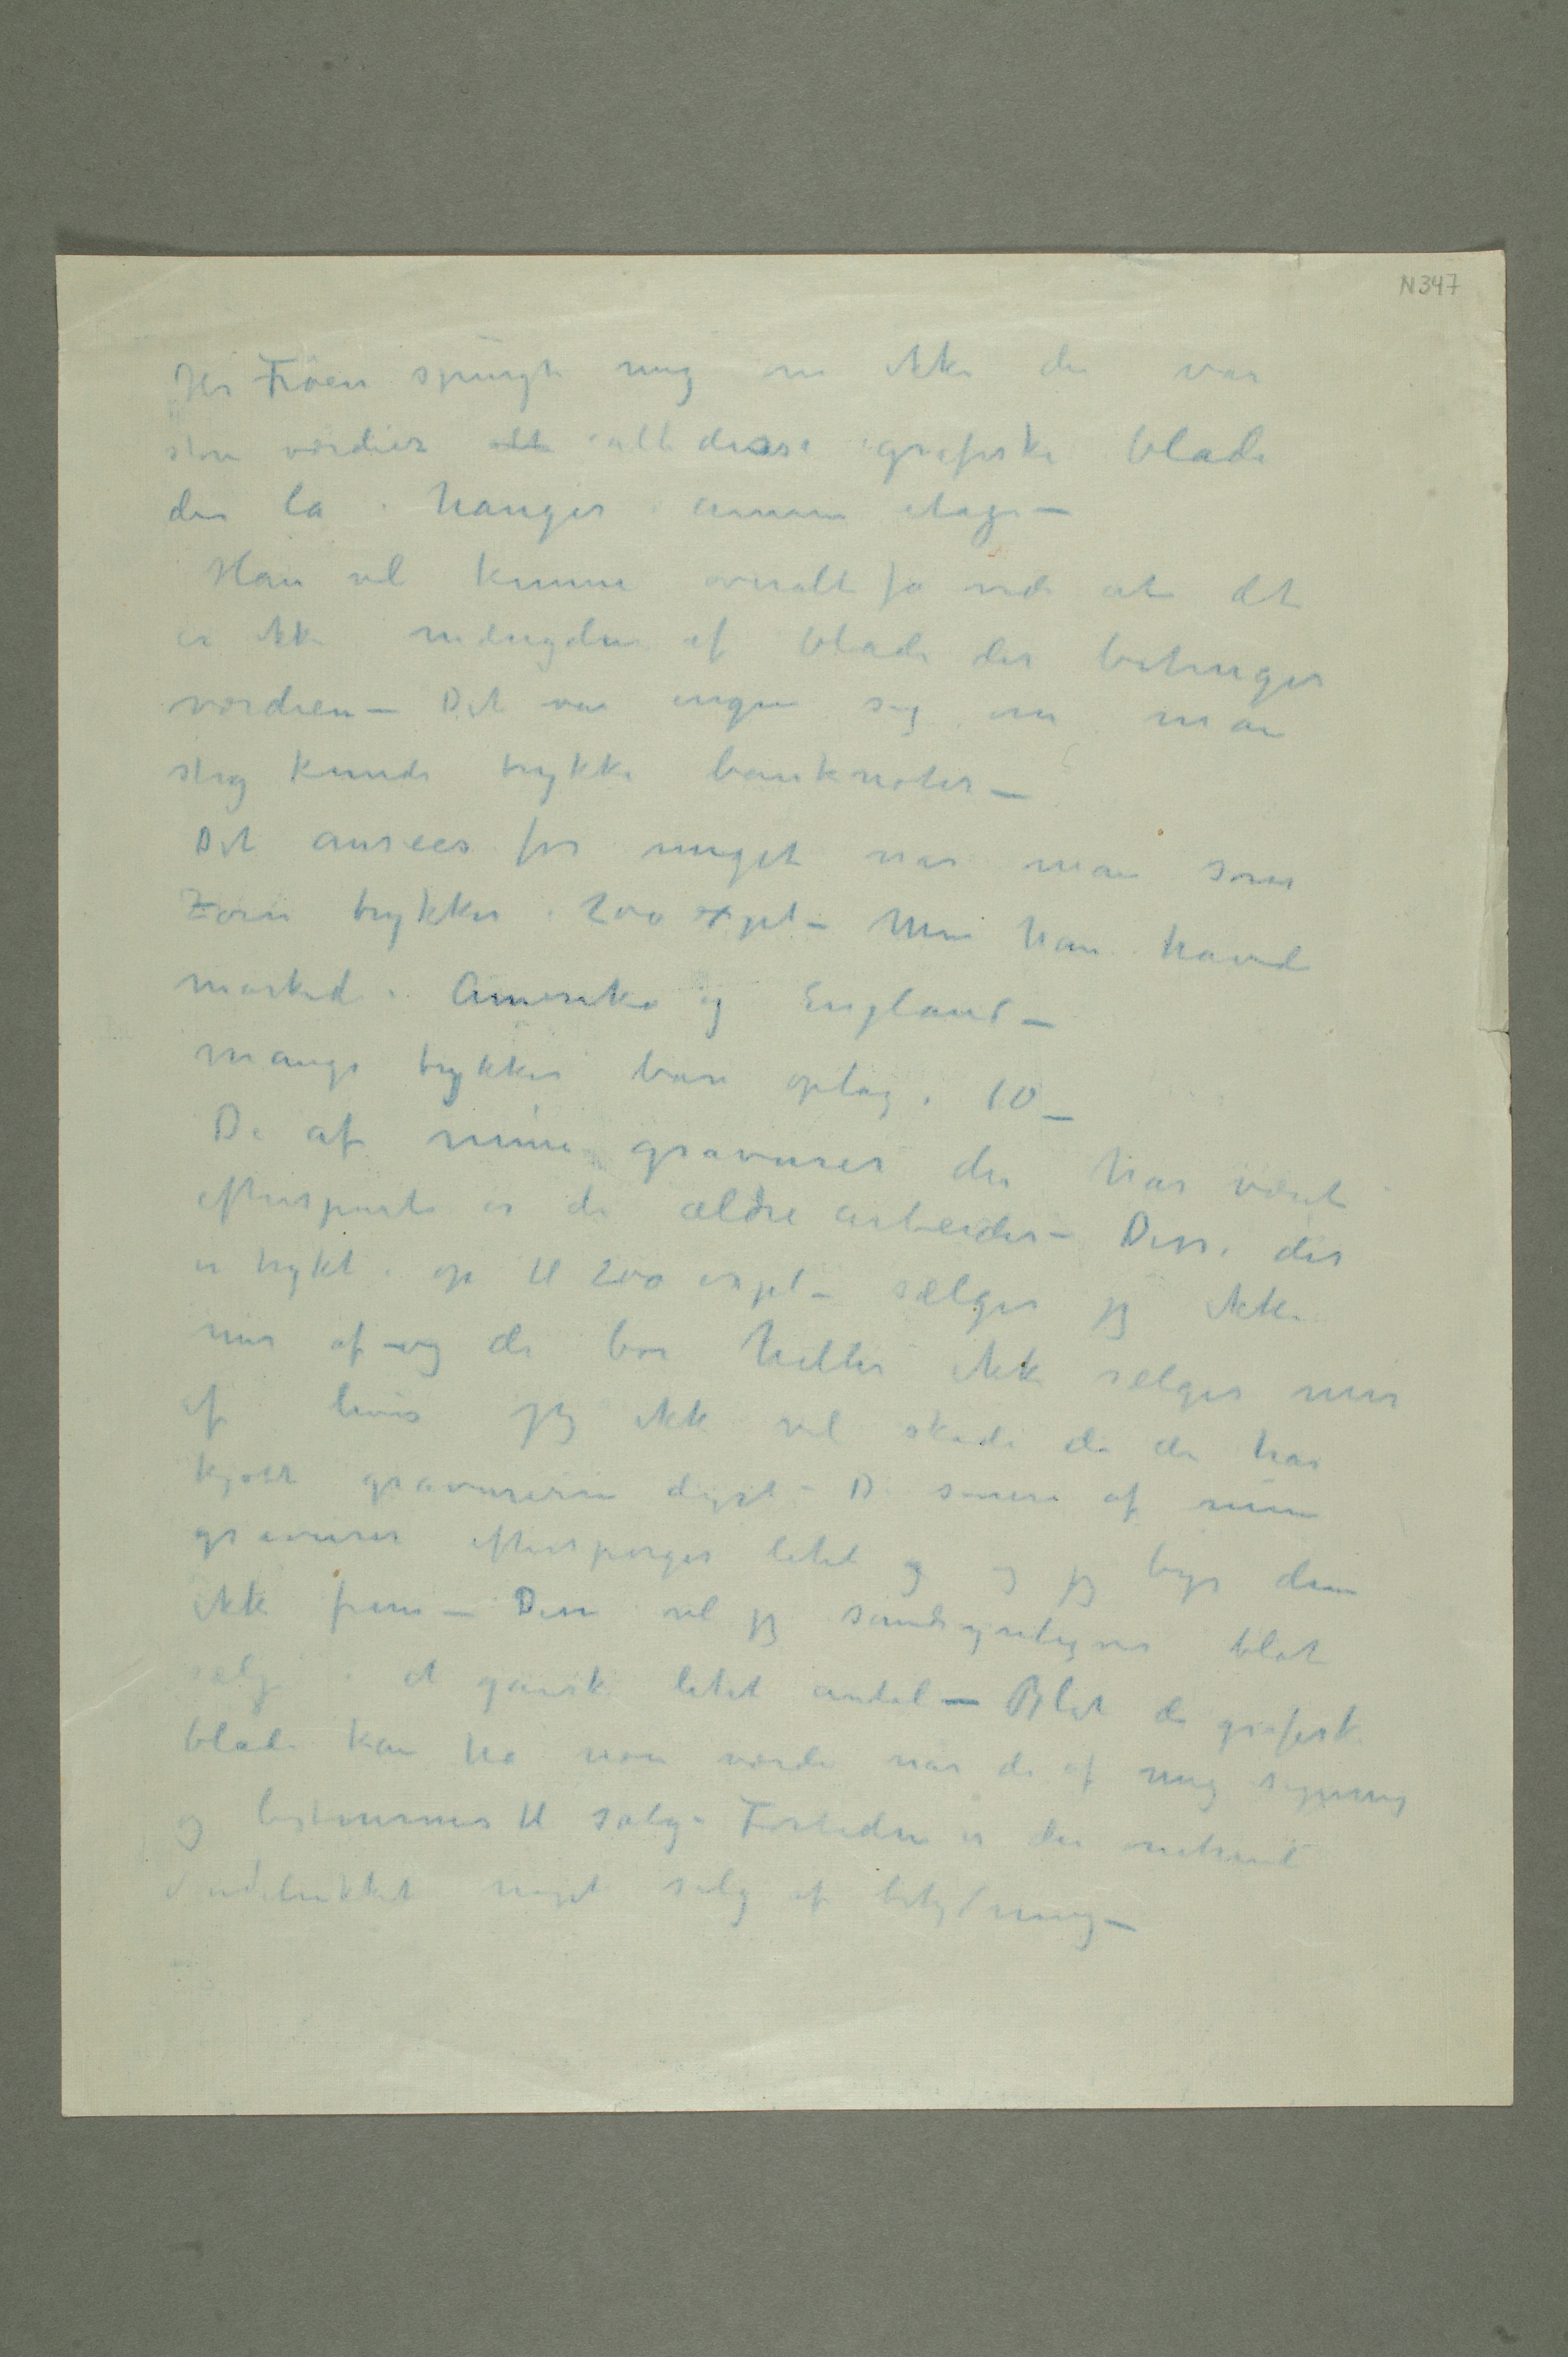 N 347
Hr Fröen spurgte mig om ikke der var
store værdier i alle disse grafiske blade
der la i hauger i annen etage –
Han vil kunne overalt få vide at det
er ikke mængden af blade der betinger
værdien – Det var ingen sag om man
slig kunde trykke banknoter –
Det ansees for meget når man som
Zorn trykker i 200 expl – Men han havde
marked i Amerika og England –
Mange trykker bare oplag i 10 –
De af mine gravurer der har været
efterspurte er de ældre arbeider – Disse der
er trykt i op til 200 expl – sælger jeg ikke
mer af – og de bør heller ikke sælges mer
af hvis jeg ikke vil skade de der har
kjøbt gravurerne dyrt – De senere af mine
gravurer efterspørges lidet og og jeg byr dem
ikke frem – Dem vil jeg sandsynligvis blot
sælge i et ganske lidet antal – Blot de grafiske
blade kan ha noen værdi når de af mig
og bestemmes til salg – Fortiden er der omtrent
udelukket noget salg af betydning –